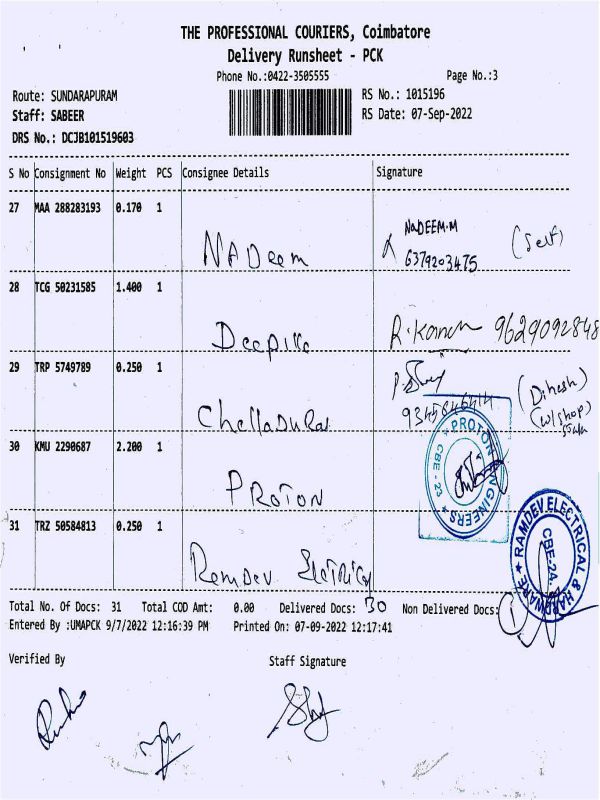 THE PROFESSIONAL COURIERS, Coimbatore
Delivery Runsheet - PCK
Phone No.:0422-3505555 Page No.:3
Route: SUNDARAPURAM RS No.: 1015196
Staff: SABEER RS Date: 07-Sep-2022
DRS No.: DCJB101519603
S No Consignment No Weight PCS Consignee Details Signature
27 MAA 288283193 0.170 1
NADeem NaDEEM.M (Self)
6379203475
28 TCG 50231585 1.400 1
Deepika R. 9629092848
29 TRP 5749789 0.250 1
ChellaDurai (Dinesh)
(W/shop)
30 KMU 2290687 2.200 1
PROTON
PROTON ENGINEERS CBE - 23
31 TRZ 50584813 0.250 1
RamDev
RAMDEV ELECTRICAL & HARDWARE CBE-24.
Total No. Of Docs: 31 Total COD Amt: 0.00 Delivered Docs: 30 Non Delivered Docs: 1
Entered By :UMAPCK 9/7/2022 12:16:39 PM Printed On: 07-09-2022 12:17:41
Verified By Staff Signature